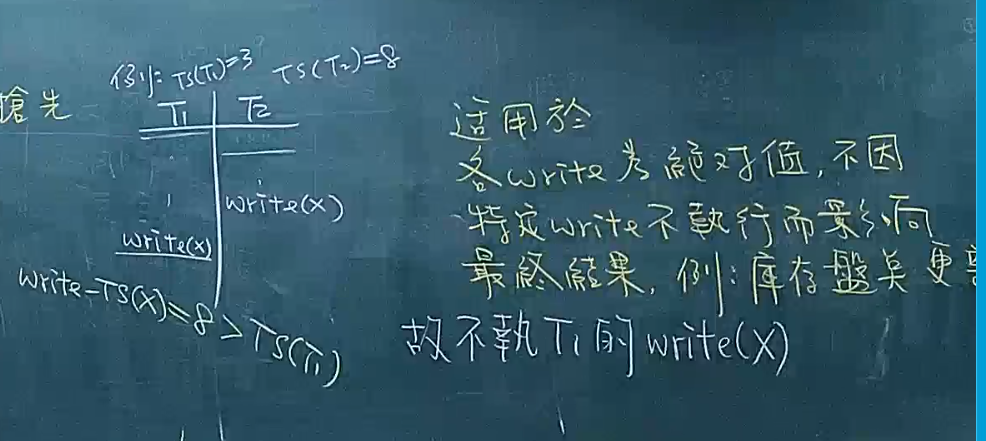 例: TS(T1)=3 TS(T2)=8
搶先
T1 T2
write(x)
write(x)
write-TS(X)=8>TS(T1)
适用於
各write为絕对值,不因
特定write不執行而影响
最終結果,例:庫存盤点更
故不執T1的write(X)